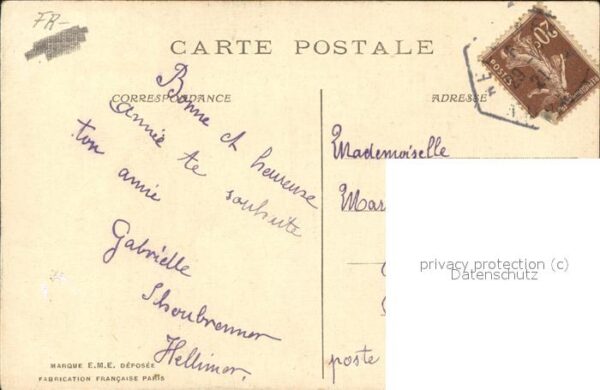 FR-
CARTE POSTALE
CORRESPONDANCE
ADRESSE
Bonne et heureuse
année te souhaite
ton amie
Gabrielle
Hellimer,
Mademoiselle
Mar
poste
20c
POSTES
privacy protection (c)
Datenschutz
MARQUE E.M.E. DÉPOSÉE
FABRICATION FRANÇAISE PARIS